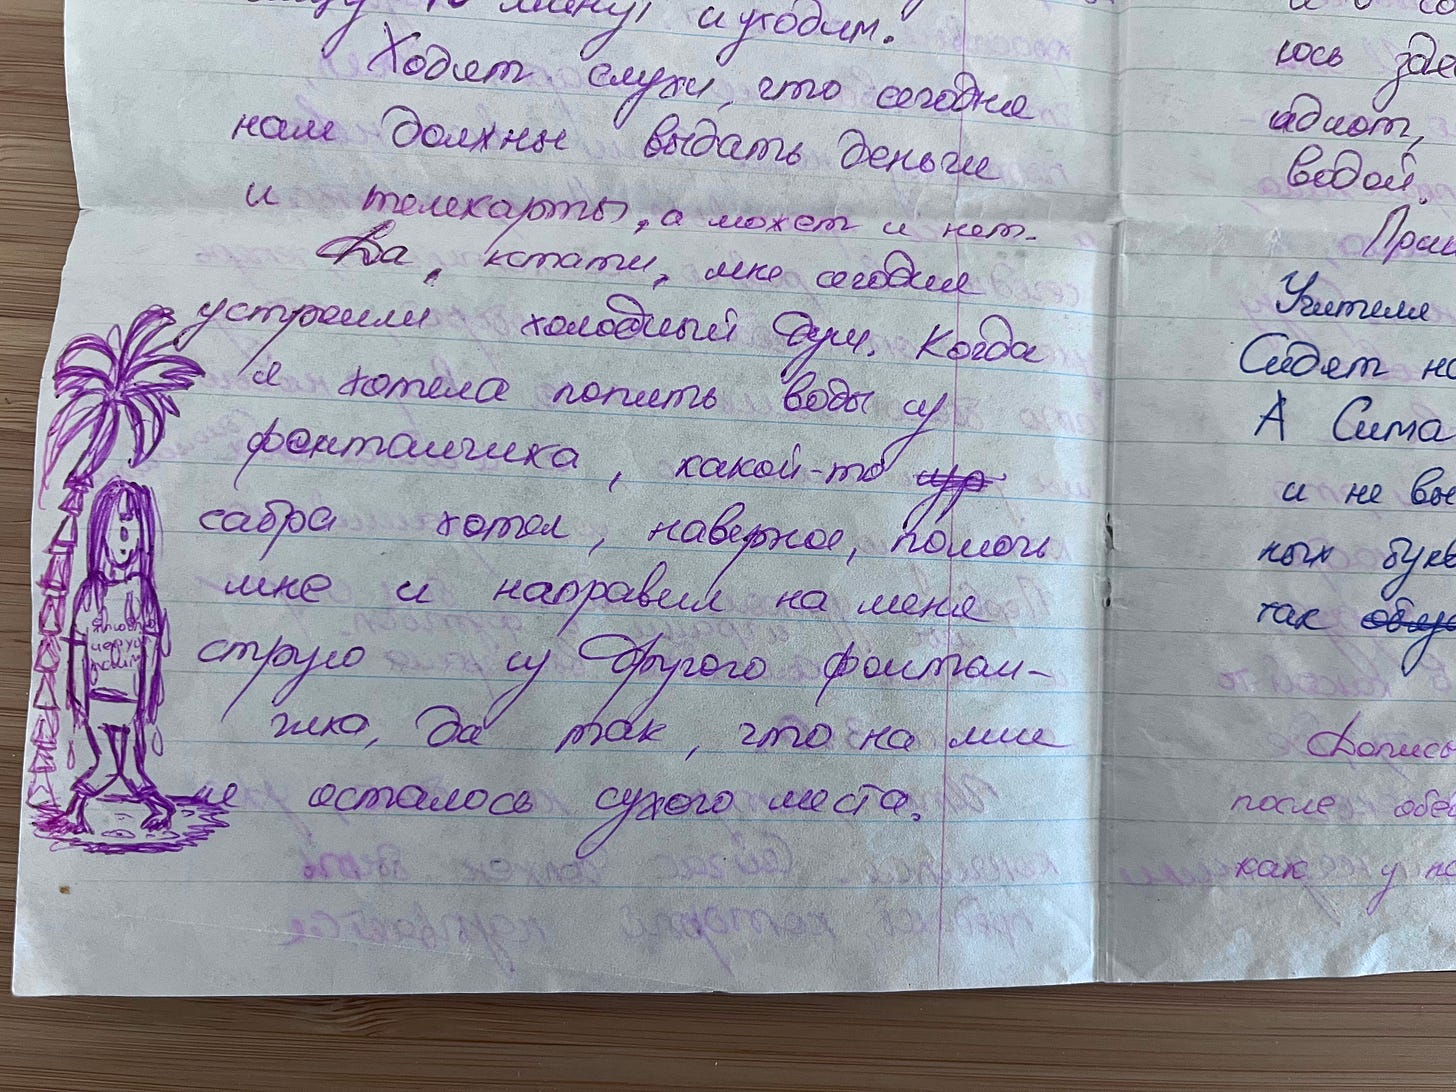 минут и уходим.
Ходят слухи, что сегодня
нам должны выдать деньги
и телекарты, а может и нет.
Да, кстати, мне сегодня
устроили холодный душ. Когда
я хотела попить воды у
фонтанчика, какой-то
сабра хотел, наверное, помочь
мне и направил на меня
струю у другого фонтан-
чика, да так, что на мне
не осталось сухого места.
и о со
юсь зде
адиот,
водой
При
Учителя
Сидят на
А Сима
и не вы
ных букв
так
Допись
после обе
как у на